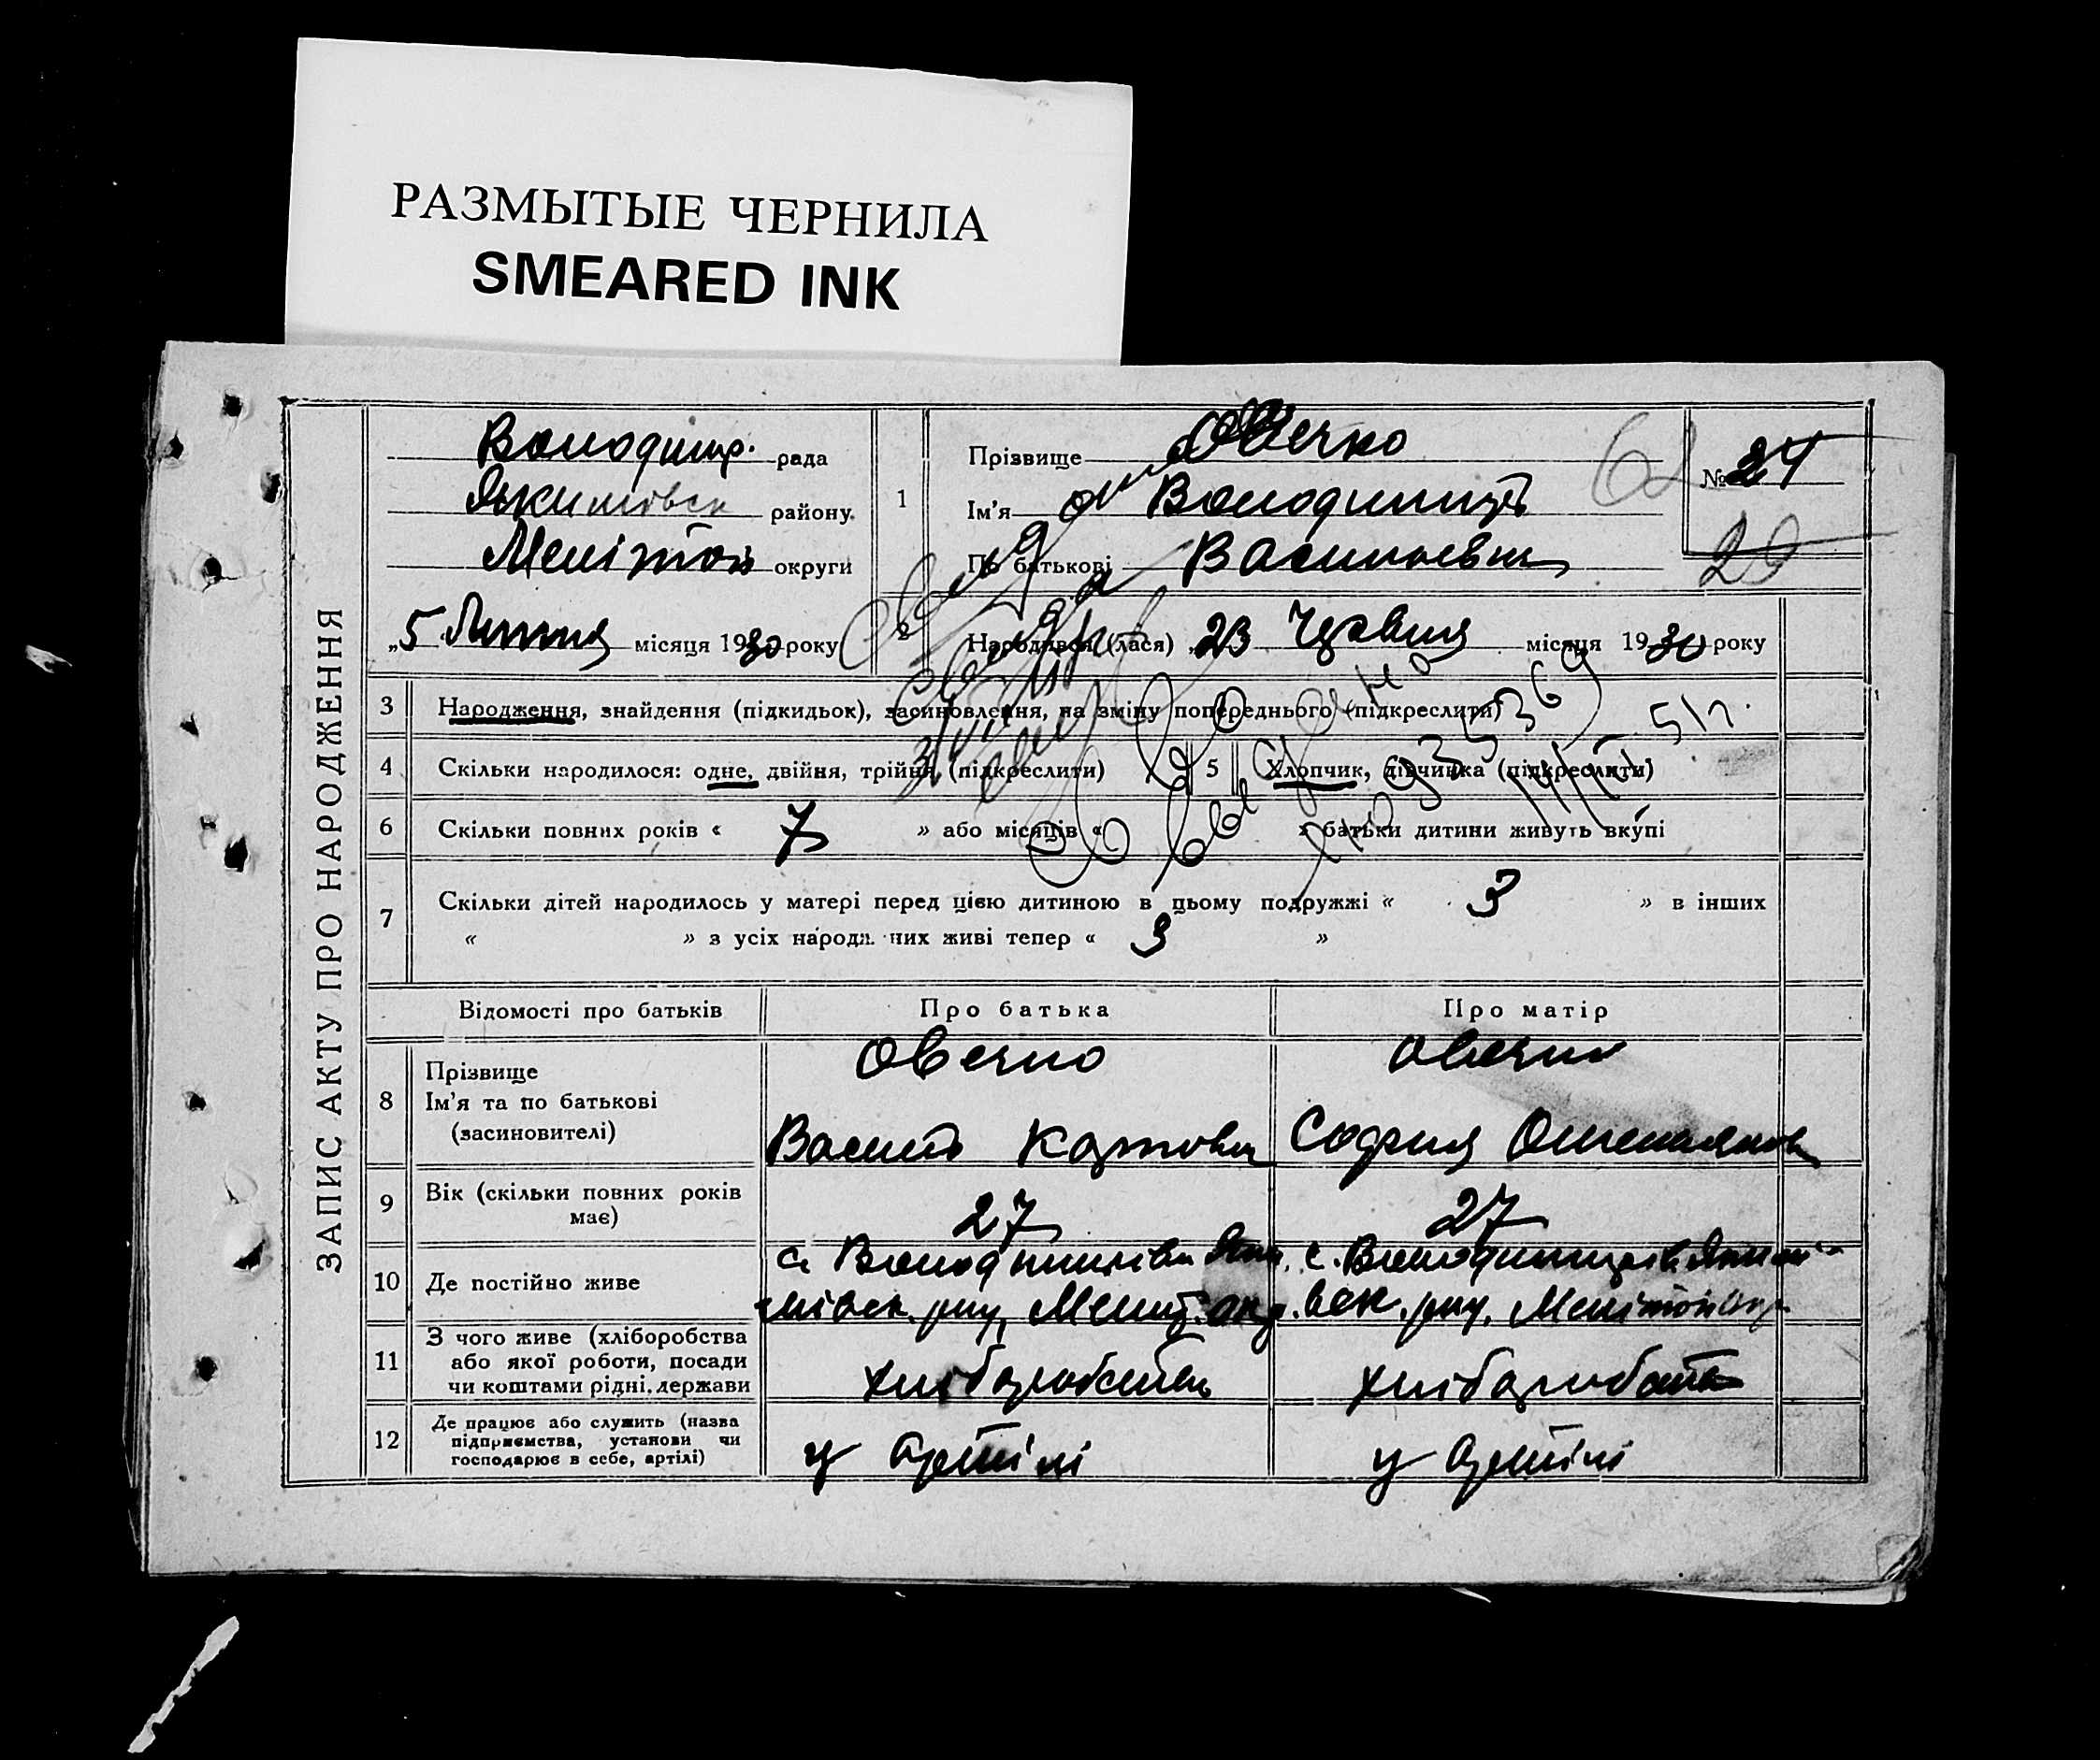 РАЗМЫТЫЕ ЧЕРНИЛА
SMEARED INK
ЗАПИС АКТУ ПРО НАРОДЖЕННЯ
Володимір. рада
Якимівськ району.
Меліт округи
1
Прізвище Овечко
Ім'я Володимир
По батькові Васильевич
№ 24
62
20
„5 Липня місяця 1930 року
2
Народився (лася) „23 Червня місяця 1930 року
3 Народження, знайдення (підкидьок), засиновлення, на зміну попереднього (підкреслити)
4 Скільки народилося: одне, двійня, трійня (підкреслити)
5 Хлопчик, дівчинка (підкреслити)
6 Скільки повних років « 7 » або місяців « » батьки дитини живуть вкупі
7 Скільки дітей народилось у матері перед цією дитиною в цьому подружжі « 3 » в інших
« » з усіх народж них живі тепер « 3 »
Відомості про батьків
Про батька
Про матір
8 Прізвище
Ім'я та по батькові
(засиновителі)
Овечко
Василь
Овечко
София
9 Вік (скільки повних років
має)
27
27
10 Де постійно живе
с. Володимирівка Яки
мівськ. рну, Меліт. окр.
с. Володимирівк Якимі
вськ. рну. Меліто окр
11 З чого живе (хліборобства
або якої роботи, посади
чи коштами рідні, держави
хліборобства
хліборобства
12 Де працює або служить (назва
підприємства, установи чи
господарює в себе, артілі)
у артілі
у артілі